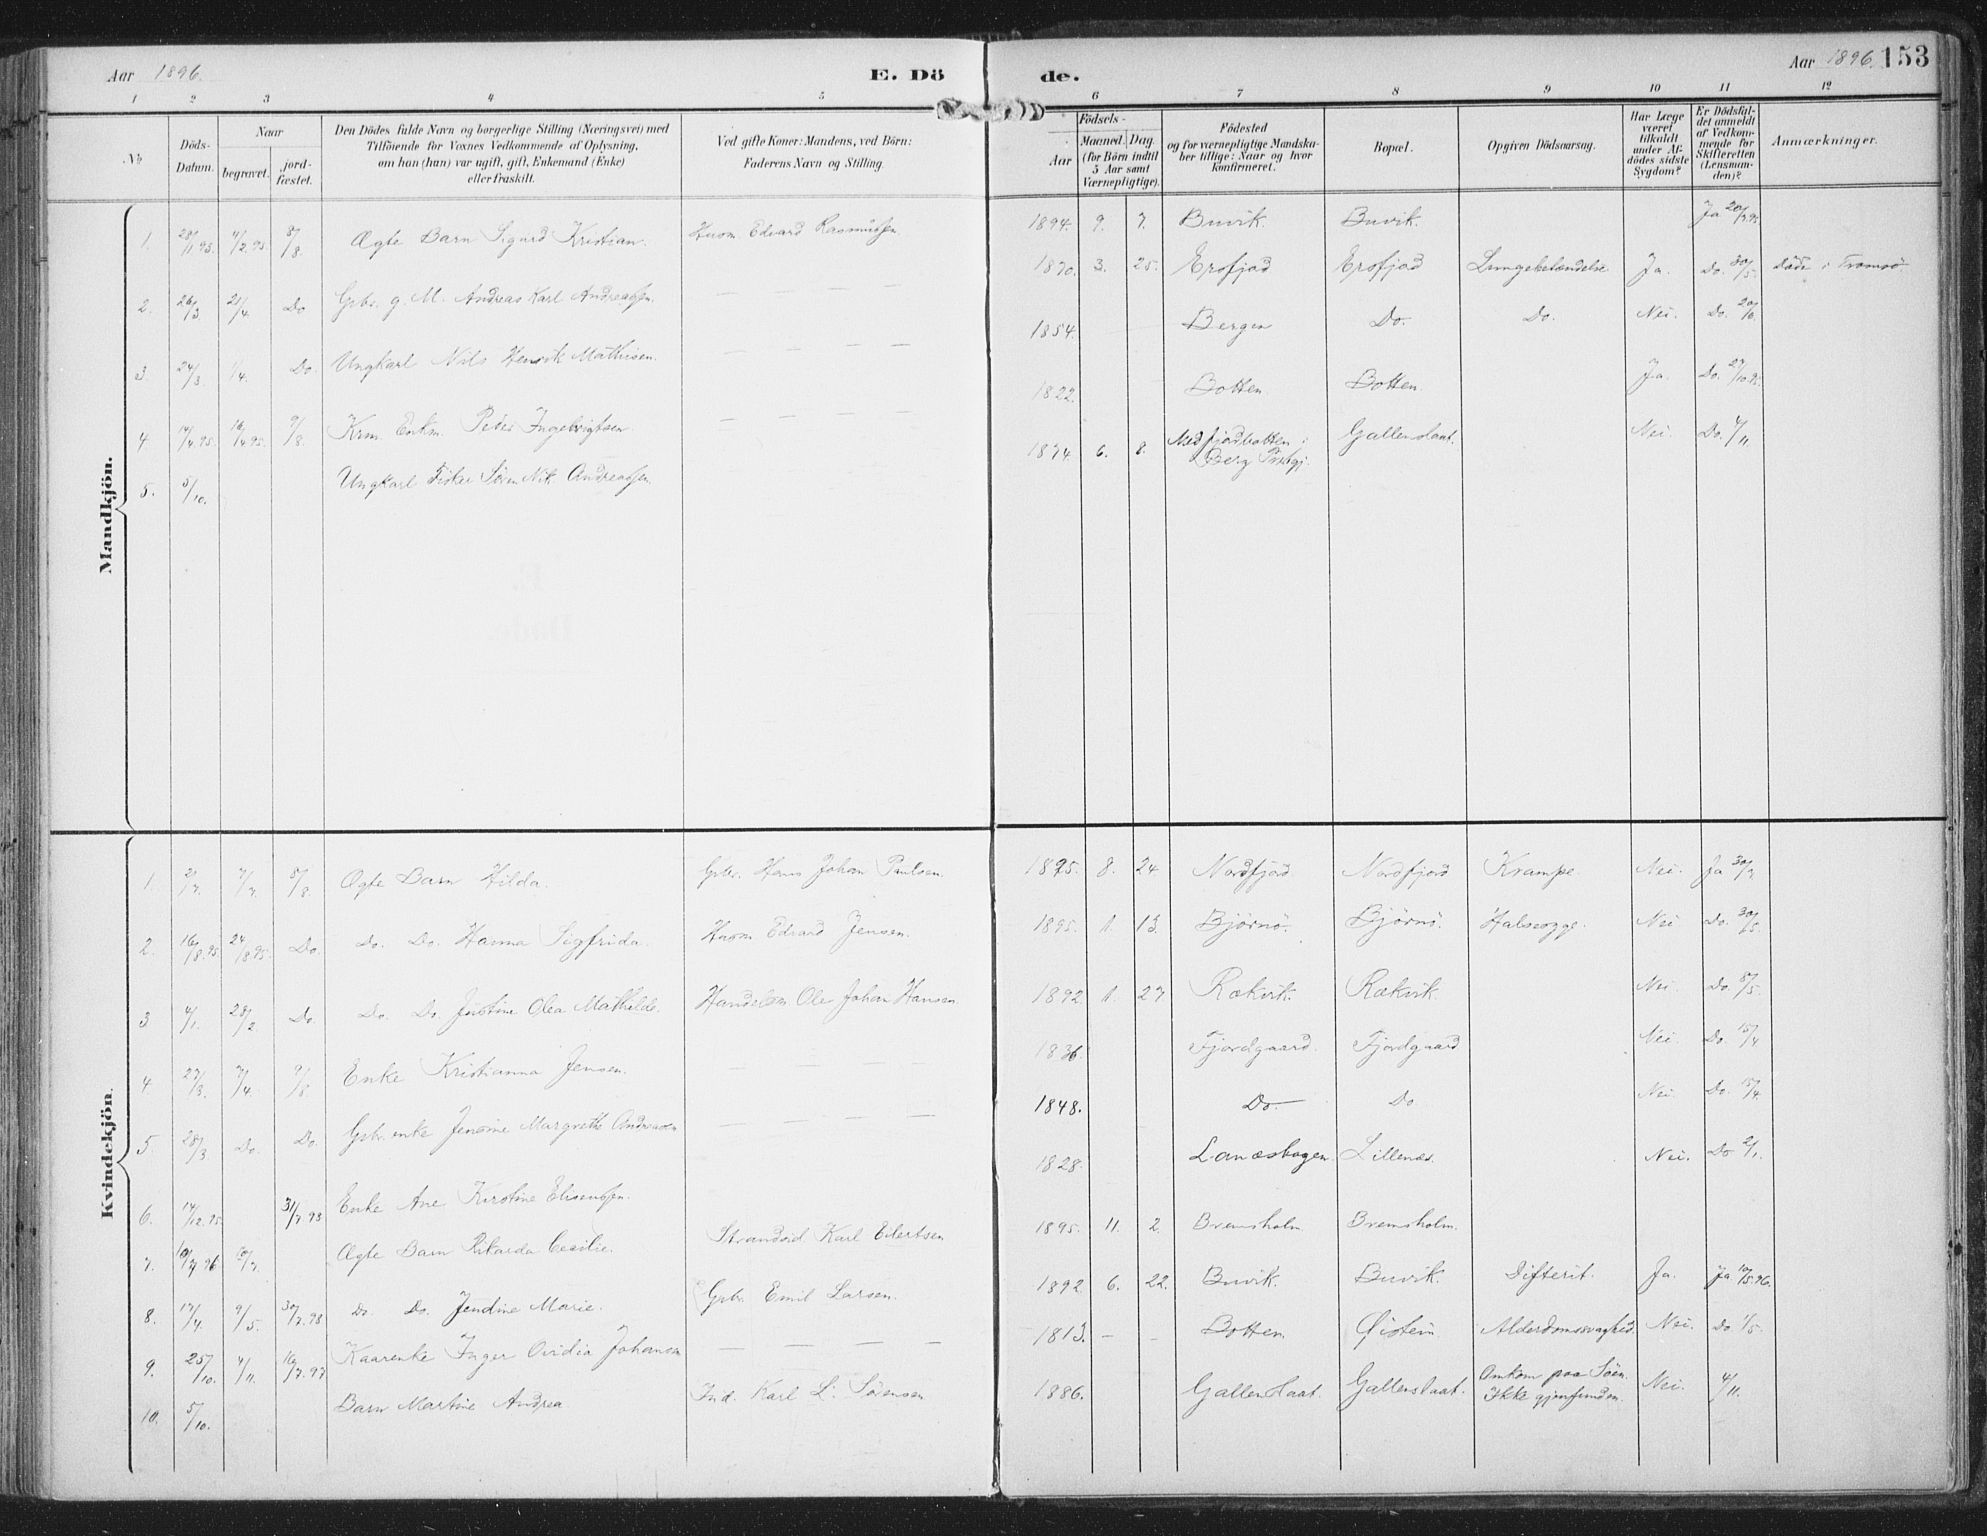 Aar 1896. E. Dö de. Aar 1896. 153
1 2 3 4 5 6 7 8 9 10 11 12
No
Döds-
Datum.
Naar
begravet.
jord-
fæstet.
Den Dödes fulde Navn og borgerlige Stilling (Næringsvei) med
Tilföiende for Voxnes Vedkommende af Oplysning,
om han (hun) var ugift, gift, Enkemand (Enke)
eller fraskilt.
Ved gifte Koner: Mandens, ved Börn:
Faderens Navn og Stilling.
Födsels-
Aar
Maaned.
Dag.
(for Börn indtil
5 Aar samt
Værnepligtige).
Födested
og for værnepligtige Mandska-
ber tillige: Naar og hvor
konfirmeret.
Bopæl.
Opgiven Dödsaarsag.
Har Læge
været
tilkaldt
under Af-
dödes sidste
Sygdom?
Er Dödsfal-
det anmeldt
af Vedkom-
mende for
Skifteretten
(Lensman-
den)?
Anmærkninger.
Mandkjön.
1. 28/1 95. 4/2 95. 8/8. Ægte Barn Sigurd Kristian. Husm. Edvard Rasmussen 1894. 9. 7. Buvik. Buvik. Ja
2. 26/3. 21/4. Do Gbr. g. M. Andreas Karl Andreassen. — — — — 1870. 3. 25. Ersfjod Ersfjod Lungebetændelse Ja. Do. 30/5. Døde i Tromsø
3. 24/3. 1/4. Do. Ungkarl Nils Henrik Mathisen. — — — — 1854. Bergen Do. Do. Nei. Do.
4. 14/4 95. 16/4 95. 9/8. Krm. Enkm. Peder Ingebrigtsen — — — — 1822. Botten. Botten. Ja. Do.
5. 3/10. Ungkarl Fisker Søren Nik. Andreassen. 1874 6. 8. Medfjordbotten i Gallenslaat. Nei. Do. 4/11
Berg Prstgj.
Kvindekjön.
1. 2/7. 7/7. 8/8. Ægte Barn Hilda. Gbr. Hans Johan Paulsen 1895. 8. 24 Nordfjord. Nordfjord Krampe. Nei. Ja
2. 16/8. 95. 24/8 95. Do. Do. Do. Hanna Sigfrida. Husm. Edvard Jensen. 1895. 1. 13. Bjørnø. Bjørnø. Halssyge. Nei Do. 30/5.
3 4/1. 28/2 Do. Do. Do. Justine Olea Mathilde. Handelsm Ole Johan Hansen 1892. 1. 27. Rækvik. Rækvik. Nei. Do. 8/5.
4 27/3. 7/4. 9/8. Enke Kristianna Jensen. — — — 1836. Fjordgaard. Fjordgaard Nei. Do. 15/4
5 28/3. Do. Do. Gbr. enke Jensine Margrethe Andreasen — — — 1848. Do. Do Nei. Do. 15/4
6. 14/12. 95. 31/7. 98 Enke Ane Kirstine Elisenssen. 1828. Lanæshagen. Lillenæs. Nei. Do 2/1.
7. Ægte Barn Rikarda Cecilie. Strandsid Karl Eilertsen 1895. 11. 2. Bremsholm Bremsholm.
8. 17/4. 9/5. 30/7. 98 Do. Do. Jendine Marie. Gbr. Emil Larsen. 1892. 6. 22. Buvik. Buvik. Difterit. Ja. Ja. 10/5. 96.
9. 25/10. 4/11. 16/7. 97 Kaarenke Inger Ovidia Johansen — — — — 1813. — — Botten. Øistein. Alderdomssvaghed. Nei. Do
10. 5/10. Barn Martine Andrea Ind. Karl L. Sørensen 1886. Gallenslaat. Gallenslaat. Omkom paa Søen. Nei. 4/11.
Ikke gjenfunden.